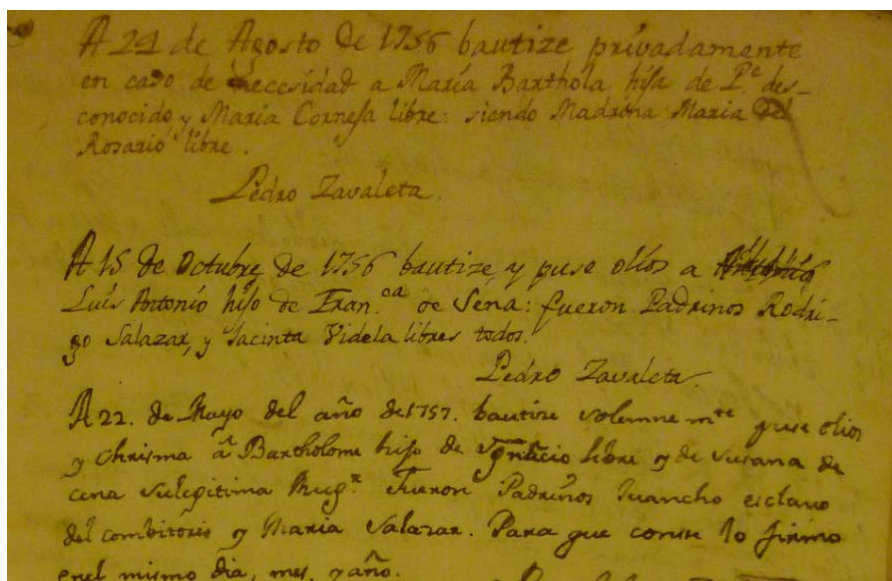 A 24 de Agosto de 1756 bautize privadamente
en caso de necesidad a María Barthola hija de P.e des-
conocido y María Corneja libre: siendo Madrina María del
Rosario libre.
Pedro Zavaleta.
A 15 de Octubre de 1756 bautize, y puse olios a
Luis Antonio hijo de Fran.ca de Sena: fueron Padrinos Rodri-
go Salazar, y Jacinta Videla libres todos.
Pedro Zavaleta.
A 22. de Mayo del año de 1757. bautize solemnem.te puse olios
y Chrisma â Bartholome hijo de Ygnacio libre y de Susana de
cena su legitima Mug.r Fueron Padrinos Juancho esclavo
del combitorio y Maria Salazar. Para que conste lo firmo
en el mismo dia, mes, y año.